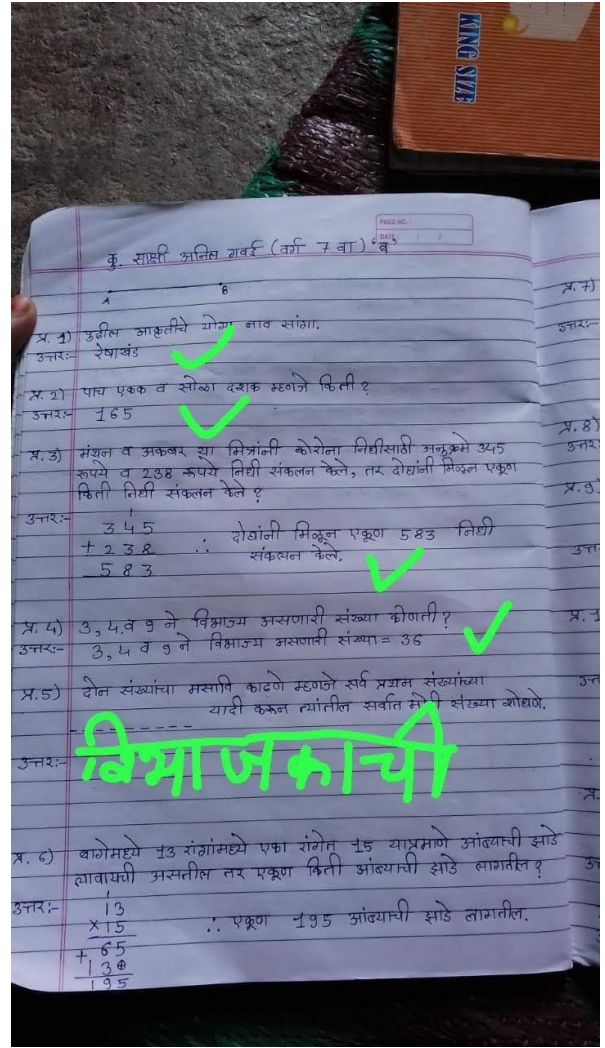 KING SIZE
PAGE NO.
DATE
कु. साक्षी अनिल गवई (वर्ग 7 वा) 'ब'
A B
प्र. 1) पुढील आकृतीचे योग्य नाव सांगा.
उत्तर:- रेषाखंड
प्र. 2) पाच एकक व सोळा दशक म्हणजे किती ?
उत्तर:- 165
प्र. 3) मंथन व अकबर या मित्रांनी कोरोना निधीसाठी अनुक्रमे 345
रूपये व 238 रूपये निधी संकलन केले, तर दोघांनी मिळून एकूण
किती निधी संकलन केले ?
उत्तर:-
1
345
+ 238
583
∴ दोघांनी मिळून एकूण 583 निधी
संकलन केले.
प्र. 4) 3, 4 व 9 ने विभाज्य असणारी संख्या कोणती ?
उत्तर:- 3, 4 व 9 ने विभाज्य असणारी संख्या = 36
प्र. 5) दोन संख्यांचा मसावि काढणे म्हणजे सर्व प्रथम संख्यांच्या
--------- यादी करून त्यांतील सर्वात मोठी संख्या शोधणे.
उत्तर:- विभाजकाची
प्र. 6) बागेमध्ये 13 रांगांमध्ये एका रांगेत 15 याप्रमाणे आंब्याची झाडे
लावायची असतील तर एकूण किती आंब्याची झाडे लागतील ?
उत्तर:-
1
13
×15
+ 65
130
195
∴ एकूण 195 आंब्याची झाडे लागतील.
प्र. 7)
उत्तर:-
प्र. 8)
उत्तर
प्र. 9)